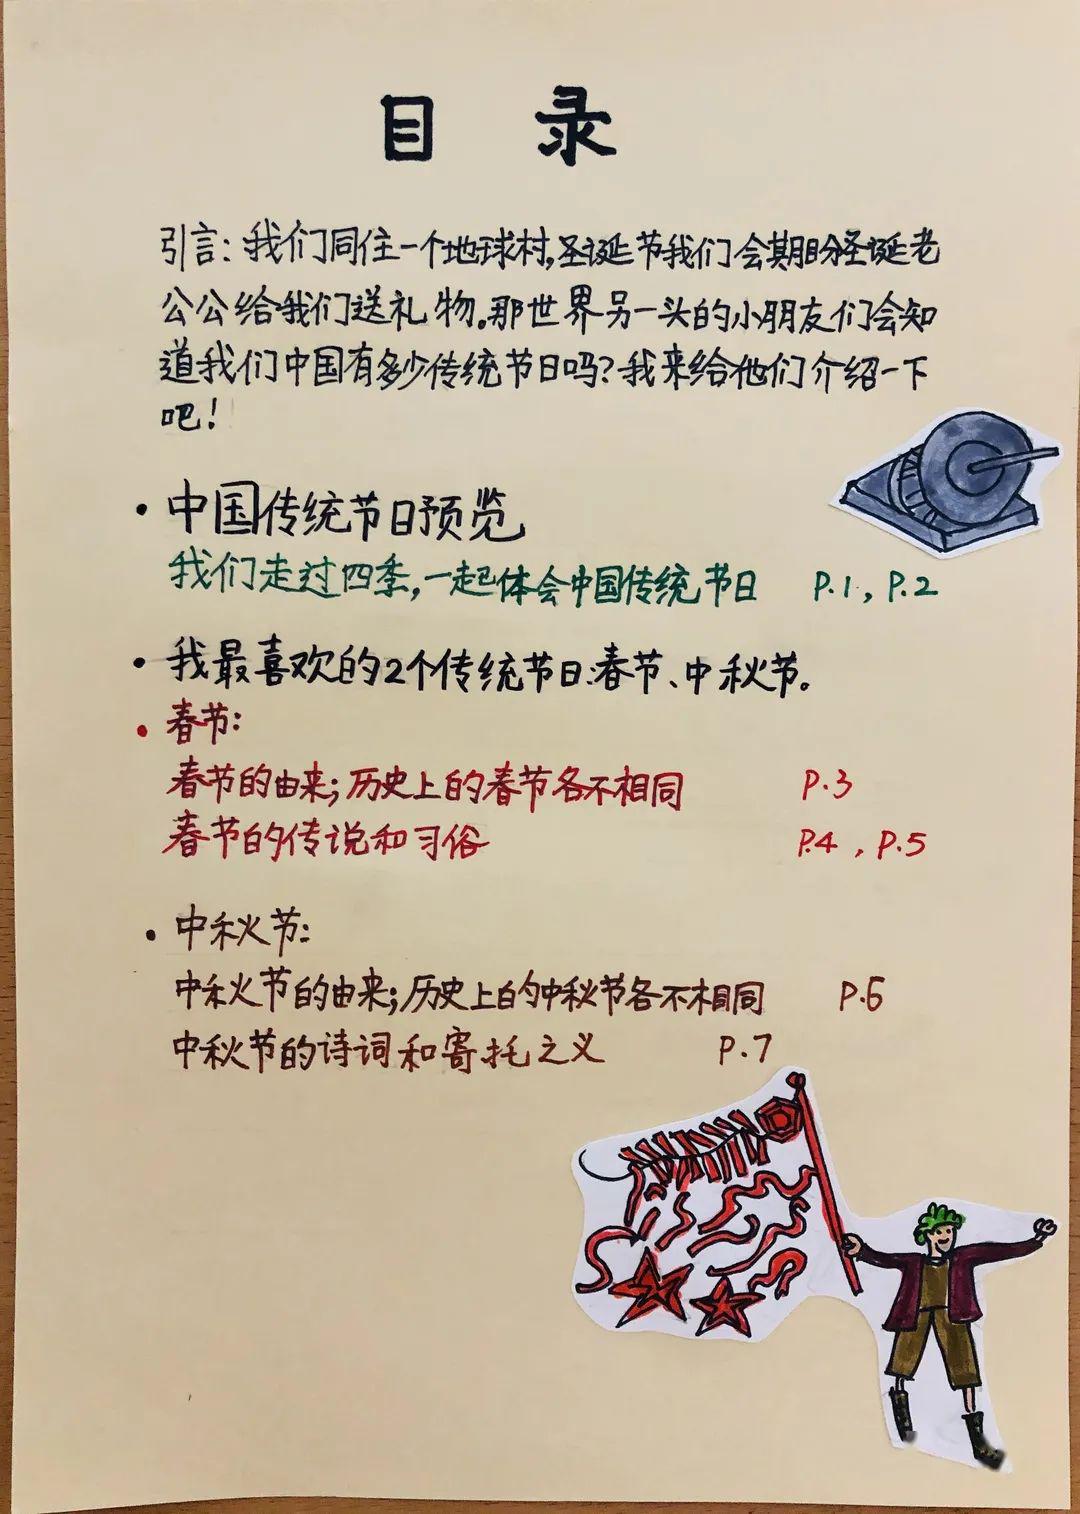 目 录
引言：我们同住一个地球村,圣诞节我们会期盼圣诞老
公公给我们送礼物。那世界另一头的小朋友们会知
道我们中国有多少传统节日吗？我来给他们介绍一下
吧！
·中国传统节日预览
我们走过四季，一起体会中国传统节日 P.1，P.2
·我最喜欢的2个传统节日：春节、中秋节。
·春节：
春节的由来；历史上的春节各不相同 P.3
春节的传说和习俗 P.4，P.5
·中秋节：
中秋节的由来；历史上的中秋节各不相同 P.6
中秋节的诗词和寄托之义 P.7